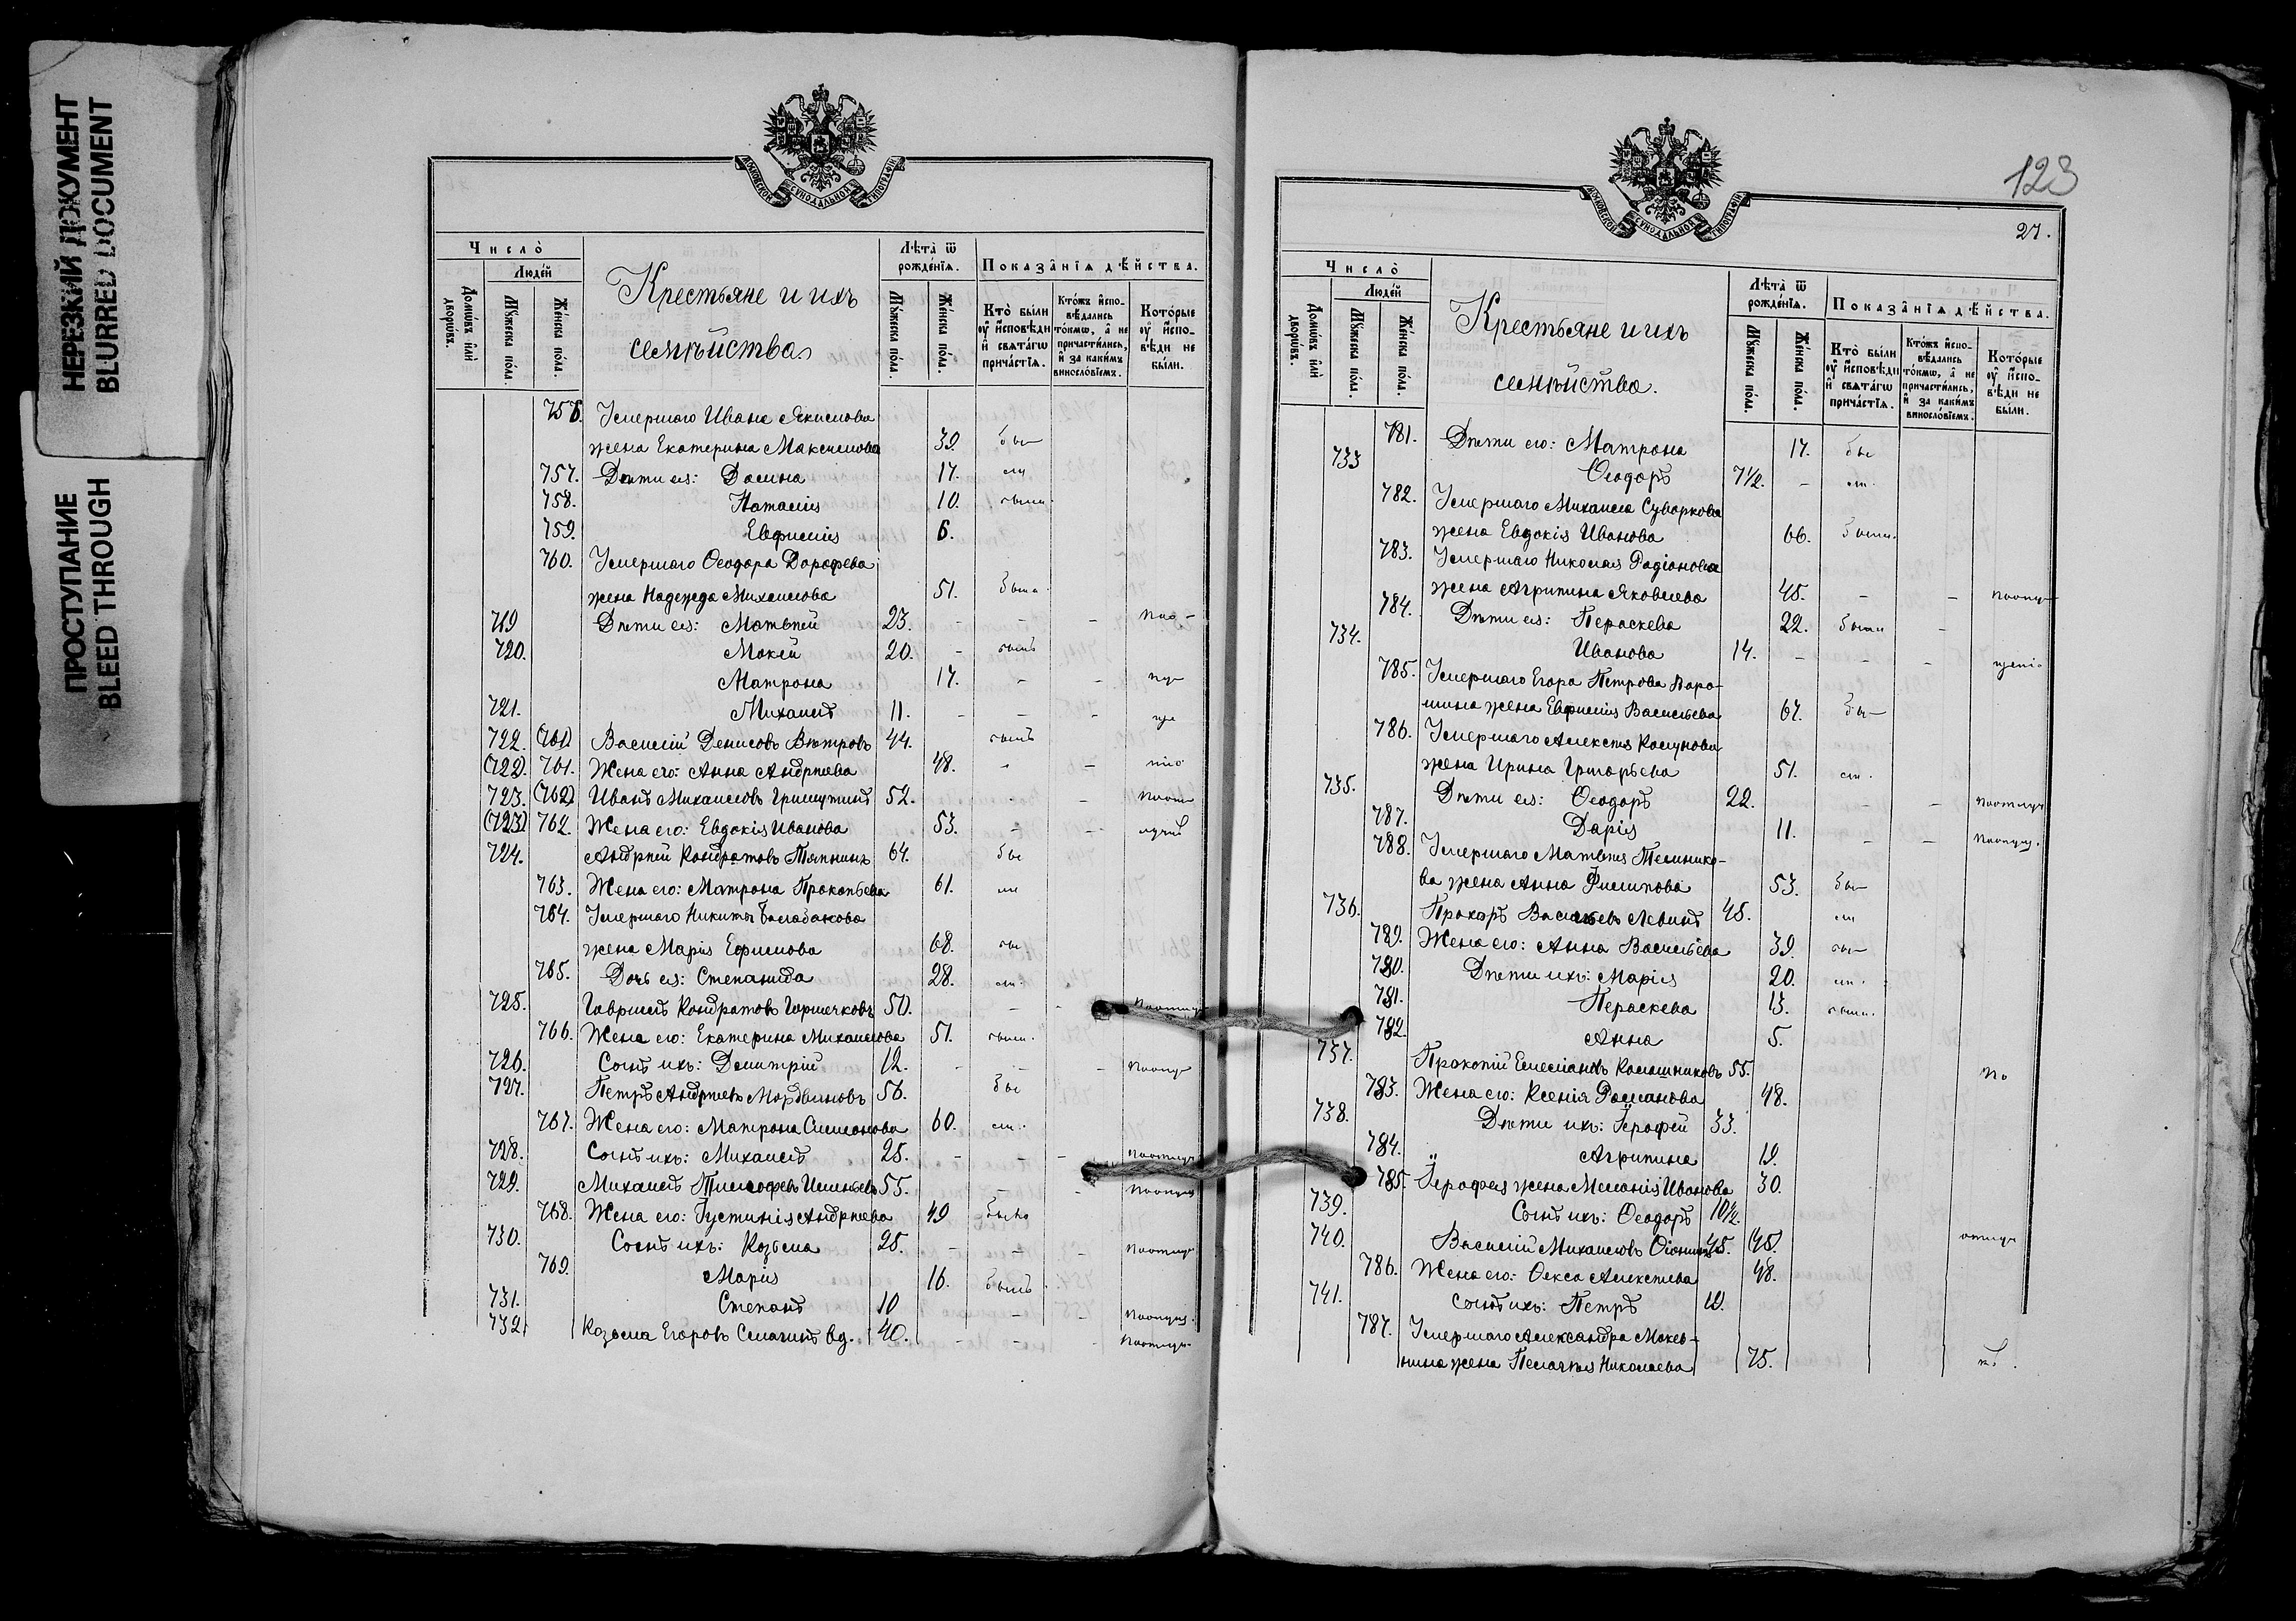 НЕРЕЗКИЙ ДОКУМЕНТ
BLURRED DOCUMENT
ПРОСТУПАНИЕ
BLEED THROUGH
МОСКОВСКОЙ СѴНОДАЛЬНОЙ ТИПОГРАФІИ
Число̀
Люде́й
Домѡ́въ и҆лѝ дворѡ́въ.
Мꙋ́жеска по́ла.
Же́нска по́ла.
Крестьяне и ихъ
семѣйства
Лѣ́та ѿ рожде́нїѧ.
Мꙋ́жеска по́ла.
Же́нска по́ла.
Показа̂нїѧ дѣ́йства.
Кто̀ бы́ли ᲂу҆ и҆сповѣ́ди и҆ свѧта́гѡ прича́стїѧ.
Кто́жъ и҆спо-вѣ́дались то́кмѡ, а҆ не причасти́лись, и҆ за каки́мъ винослові́емъ.
Кото́рые ᲂу҆ и҆спо-вѣ́ди не бы́ли.
756. Умершаго Ивана Якимова
жена Екатерина Максимова 39. бы
757. Дѣти ея: Домна 17.
758. Наталія 10.
759. Евфимія 6.
760. Умершаго Ѳеодора Дорофева
жена Надежда Михаилова 51.
719 Дѣти ея: Матвѣй 23. - - -
720. Мокій 20. -
Матрона 17. - -
721. Михаилъ 11. - - -
722. (761) Василій Денисовъ Вѣтровъ 44.
(722). 761. Жена его: Анна Андреева 48. - -
723. (762) Иванъ Михаиловъ Гришутинъ 52. - -
(723) 762. Жена его: Евдокія Иванова 53. - -
724. Андрей Кондратовъ Тяпкинъ 64. бы
763. Жена его: Матрона Прокопьева 61.
764. Умершаго Никиты Балабанова
жена Марія Ефимова 68.
765. Дочь ея: Степанида 28.
725. Гавриилъ Кондратовъ Горшечковъ 50. -
766. Жена его: Екатерина Михаилова 51.
726. Сынъ ихъ: Димитрій 12. - - -
727. Петръ Андреевъ Мордвиновъ 56. бы
767. Жена его: Матрона Симонова 60.
728. Сынъ ихъ: Михаилъ 25. - - -
729. Михаилъ Тимофевъ 55. - -
768. Жена его: Іустинія Андреева 49
730. Сынъ ихъ: Козьма 25. - - -
769. Марія 16.
731. Степанъ 10 - -
732. Козьма Егоровъ Смагинъ вд. 40. - - -
123
27.
МОСКОВСКОЙ СѴНОДАЛЬНОЙ ТИПОГРАФІИ
Число̀
Люде́й
Домѡ́въ и҆лѝ дворѡ́въ.
Мꙋ́жеска по́ла.
Же́нска по́ла.
Крестьяне и ихъ
семѣйства.
Лѣ́та ѿ рожде́нїѧ.
Мꙋ́жеска по́ла.
Же́нска по́ла.
Показа̂нїѧ дѣ́йства.
Кто̀ бы́ли ᲂу҆ и҆сповѣ́ди и҆ свѧта́гѡ прича́стїѧ.
Кто́жъ и҆спо-вѣ́дались то́кмѡ, а҆ не причасти́лись, и҆ за каки́мъ винослові́емъ.
Кото́рые ᲂу҆ и҆спо-вѣ́ди не бы́ли.
781. Дѣти его: Матрона 17. бы
733 Ѳеодоръ 7½. -
782. Умершаго Михаила Суворкова
жена Евдокія Иванова 66.
783. Умершаго Николая Родіонова
жена Агрипина Яковлева 45. - -
784. Дѣти ея: Пераскева 22. -
734. Иванова 14. - - -
785. Умершаго Егора Петрова Паро-
шина жена Евфимія Васильева 67. бы
786. Умершаго Алексѣя
жена Ирина Григорьева 51.
735. Дѣти ея: Ѳеодоръ 22. - -
787. Дарія 11. - -
788. Умершаго Матвѣя Телѣнико-
ва жена Анна Филипова 53. бы
736. Прохоръ Васильевъ Левинъ 45.
789. Жена его: Анна Васильева 39.
780. Дѣти ихъ: Марія 20.
781. Пераскева 13.
782. Анна 5.
737. Прокопій Емеліановъ Калашниковъ 55.
783. Жена его: Ксенія Романова 48.
738. Дѣти ихъ: Іерофей 33.
784. Агрипина 19.
785. Іерофея жена Меланія Иванова 30.
739. Сынъ ихъ: Ѳеодоръ 10½.
740. Василій Михаиловъ 45. (45).
786. Жена его: Ѳекла Алексѣева 48.
741. Сынъ ихъ: Петръ 19.
787. Умершаго Александра Мокев-
нина жена Пелагія Николаева 75.